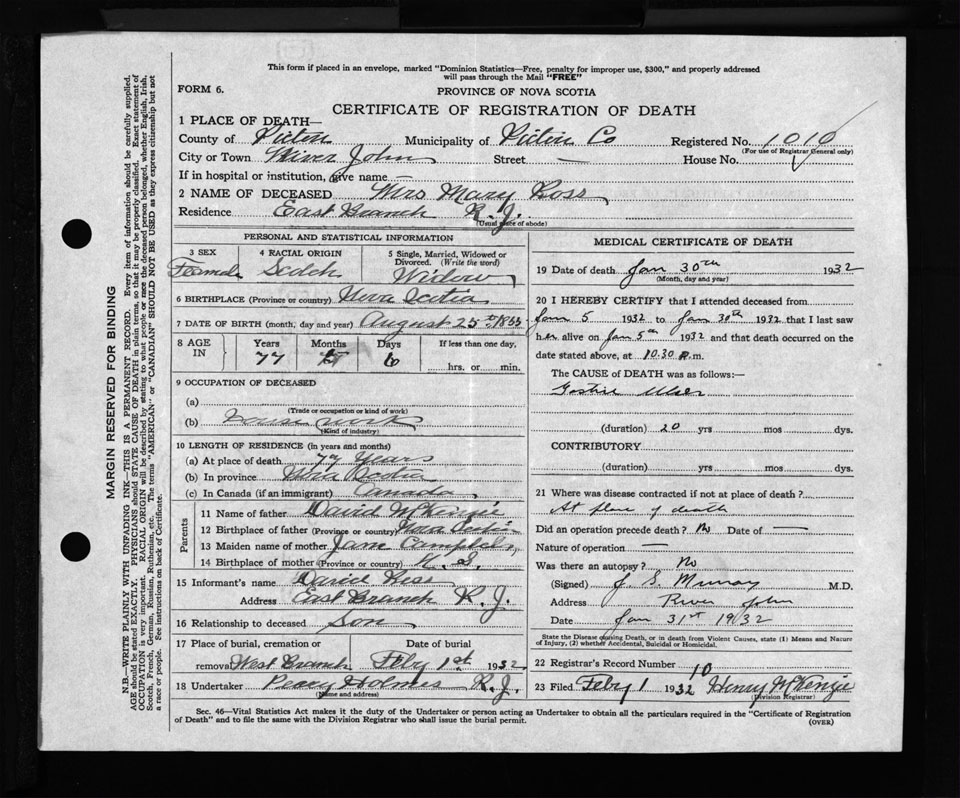 This form if placed in an envelope, marked "Dominion Statistics—Free, penalty for improper use, $300," and properly addressed
will pass through the Mail "FREE"
FORM 6.
PROVINCE OF NOVA SCOTIA
CERTIFICATE OF REGISTRATION OF DEATH
1 PLACE OF DEATH—
County of Pictou Municipality of Pictou Co Registered No. 1010
(For use of Registrar General only)
City or Town River John Street — House No.
If in hospital or institution, give name —
2 NAME OF DECEASED Mrs Mary Ross
Residence East Branch R. J.
(Usual place of abode)
PERSONAL AND STATISTICAL INFORMATION
3 SEX 4 RACIAL ORIGIN 5 Single, Married, Widowed or Divorced. (Write the word)
Female Scotch Widow
6 BIRTHPLACE (Province or country) Nova Scotia
7 DATE OF BIRTH (month, day and year) August 25th
8 AGE IN Years Months Days If less than one day,
77 5 6 hrs. or min.
9 OCCUPATION OF DECEASED
(a)
(Trade or occupation or kind of work)
(b) House work
(Kind of industry)
10 LENGTH OF RESIDENCE (in years and months)
(a) At place of death 77 Years
(b) In province Nova Scotia
(c) In Canada (if an immigrant) Canada
Parents
11 Name of father David McKenzie
12 Birthplace of father (Province or country) Nova Scotia
13 Maiden name of mother Jane Campbell
14 Birthplace of mother (Province or country) N. S.
15 Informant's name David Ross
Address East Branch R. J.
16 Relationship to deceased Son
17 Place of burial, cremation or Date of burial
removal West Branch Feby 1st 1932
18 Undertaker Percy Holmes R. J.
(Name and address)
MEDICAL CERTIFICATE OF DEATH
19 Date of death Jan 30th 1932
(Month, day and year)
20 I HEREBY CERTIFY that I attended deceased from
Jan 5 1932 to Jan 30th 1932 that I last saw
her alive on Jan 5th 1932 and that death occurred on the
date stated above, at 10.30 P.m.
The CAUSE of DEATH was as follows:—
Gastric Ulcer
(duration) 20 yrs mos dys.
CONTRIBUTORY
(duration) yrs mos dys.
21 Where was disease contracted if not at place of death?
At place of death
Did an operation precede death? No Date of —
Nature of operation —
Was there an autopsy? No
(Signed) J S. Murray M.D.
Address River John
Date Jan 31st 1932
State the Disease causing Death, or in death from Violent Causes, state (1) Means and Nature
of Injury, (2) whether Accidental, Suicidal or Homicidal.
22 Registrar's Record Number 10
23 Filed Feby 1 1932 Henry McKenzie
(Division Registrar)
Sec. 46—Vital Statistics Act makes it the duty of the Undertaker or person acting as Undertaker to obtain all the particulars required in the "Certificate of Registration
of Death" and to file the same with the Division Registrar who shall issue the burial permit.
(OVER)
MARGIN RESERVED FOR BINDING
N.B.—WRITE PLAINLY WITH UNFADING INK—THIS IS A PERMANENT RECORD. Every item of information should be carefully supplied.
AGE should be stated EXACTLY. PHYSICIANS should STATE CAUSE OF DEATH in plain terms, so that it may be properly classified. Exact statement of
OCCUPATION is very important. RACIAL ORIGIN will be described by stating to what people or race the deceased person belonged, whether English, Irish,
Scotch, French, German, Russian, Ruthenian, etc. The terms "AMERICAN" or "CANADIAN" SHOULD NOT BE USED as they express citizenship but not
a race or people. See instructions on back of Certificate.